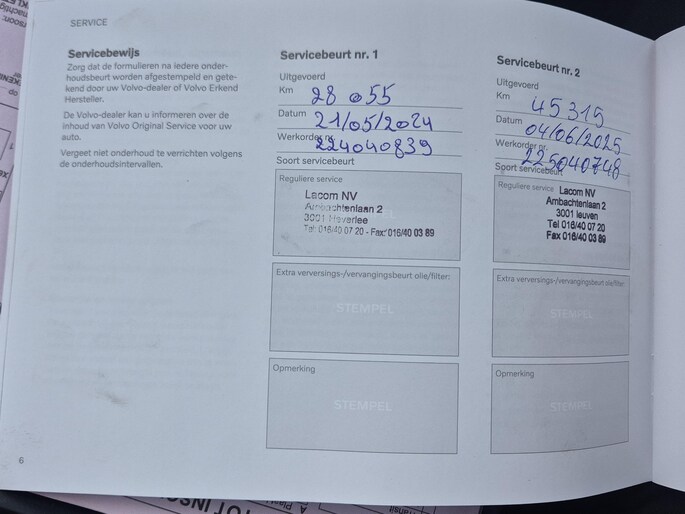 SERVICE
Servicebewijs
Zorg dat de formulieren na iedere onder-
houdsbeurt worden afgestempeld en gete-
kend door uw Volvo-dealer of Volvo Erkend
Hersteller.
De Volvo-dealer kan u informeren over de
inhoud van Volvo Original Service voor uw
auto.
Vergeet niet onderhoud te verrichten volgens
de onderhoudsintervallen.
6
Servicebeurt nr. 1
Uitgevoerd
Km 28 055
Datum 21/05/2024
Werkorder nr. 224040839
Soort servicebeurt
Reguliere service
Lacom NV
Ambachtenlaan 2
3001 Heverlee
Tel: 016/40 07 20 - Fax: 016/40 03 89
Extra verversings-/vervangingsbeurt olie/filter:
STEMPEL
Opmerking
STEMPEL
Servicebeurt nr. 2
Uitgevoerd
Km 45315
Datum 04/06/2025
Werkorder nr. 225040748
Soort servicebeurt
Reguliere service
Lacom NV
Ambachtenlaan 2
3001 leuven
Tel 016/40 07 20
Fax 016/40 03 89
Extra verversings-/vervangingsbeurt olie/filter:
STEMPEL
Opmerking
STEMPEL